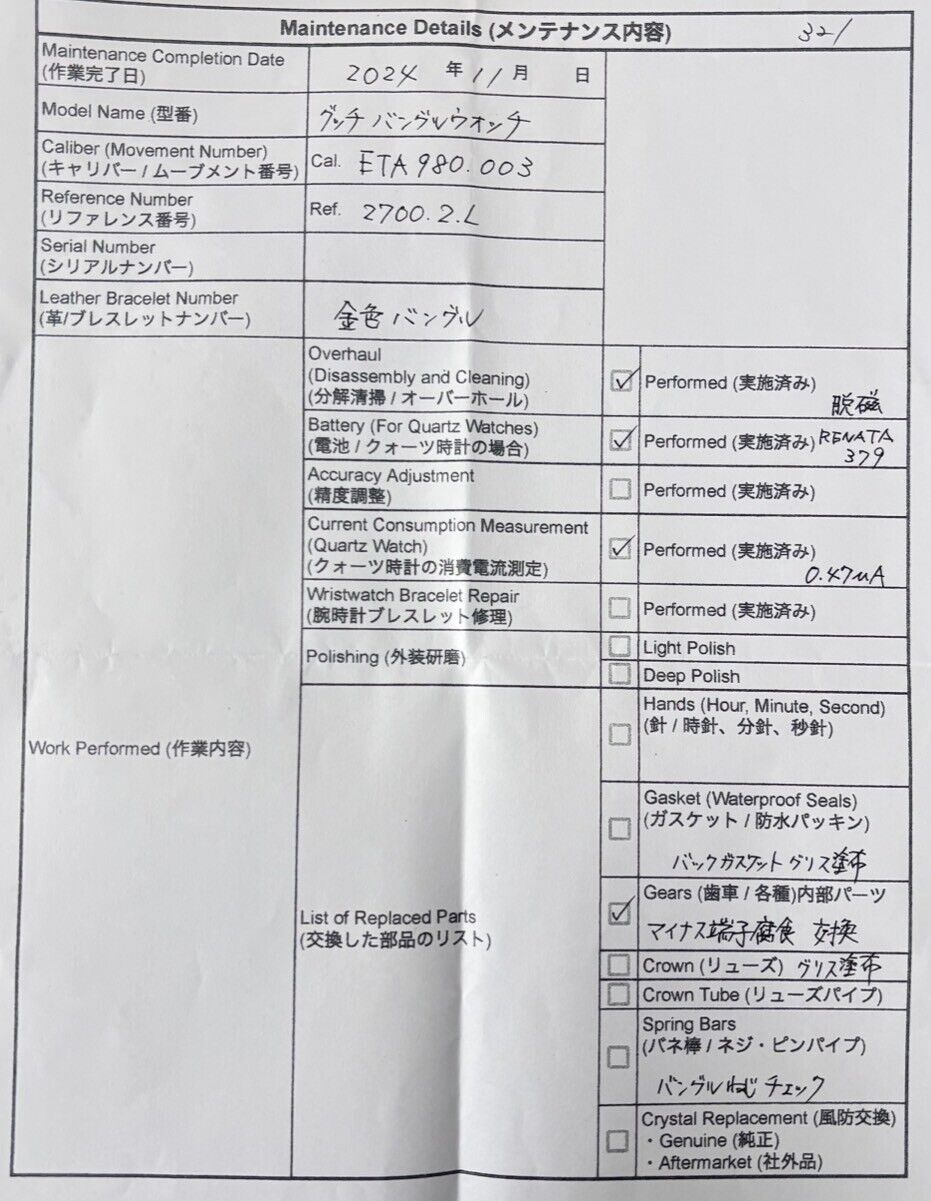 Maintenance Details (メンテナンス内容) 321
Maintenance Completion Date
(作業完了日)
2024 年 11 月 日
Model Name (型番)
グッチ バングルウオッチ
Caliber (Movement Number)
(キャリバー / ムーブメント番号)
Cal. ETA 980.003
Reference Number
(リファレンス番号)
Ref. 2700.2.L
Serial Number
(シリアルナンバー)
Leather Bracelet Number
(革/ブレスレットナンバー)
金色 バングル
Work Performed (作業内容)
Overhaul
(Disassembly and Cleaning)
(分解清掃 / オーバーホール)
Performed (実施済み)
脱磁
Battery (For Quartz Watches)
(電池 / クォーツ時計の場合)
Performed (実施済み) RENATA
379
Accuracy Adjustment
(精度調整)
Performed (実施済み)
Current Consumption Measurement
(Quartz Watch)
(クォーツ時計の消費電流測定)
Performed (実施済み)
0.47μA
Wristwatch Bracelet Repair
(腕時計ブレスレット修理)
Performed (実施済み)
Polishing (外装研磨)
Light Polish
Deep Polish
List of Replaced Parts
(交換した部品のリスト)
Hands (Hour, Minute, Second)
(針 / 時針、分針、秒針)
Gasket (Waterproof Seals)
(ガスケット / 防水パッキン)
バックガスケット グリス塗布
Gears (歯車 / 各種)内部パーツ
マイナス端子腐食 交換
Crown (リューズ) グリス塗布
Crown Tube (リューズパイプ)
Spring Bars
(バネ棒 / ネジ・ピンパイプ)
バングルねじ チェック
Crystal Replacement (風防交換)
・Genuine (純正)
・Aftermarket (社外品)